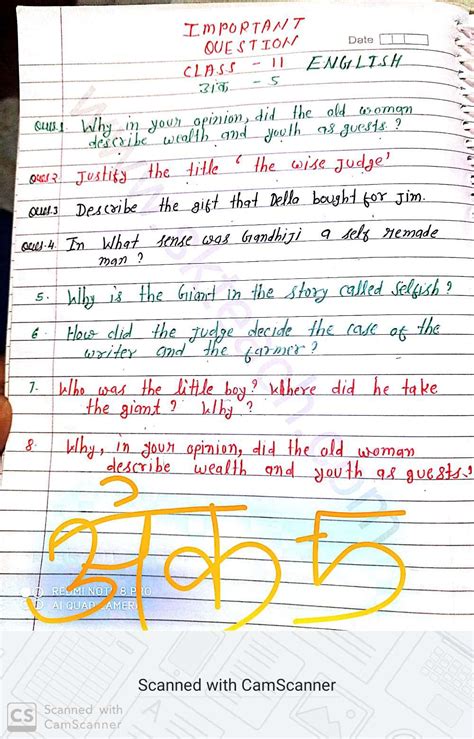 IMPORTANT
QUESTION
Date
CLASS - 11 ENGLISH
अंक - 5
Ques.1 Why in your opinion, did the old woman
describe wealth and youth as guests. ?
Ques.2 Justify the title ' the wise Judge'
Ques.3 Describe the gift that Della bought for Jim.
Ques.4. In What sense was Gandhiji a self remade
man ?
5. Why is the Giant in the story called Selfish ?
6. How did the Judge decide the case of the
writer and the farmer ?
7. Who was the little boy ? Where did he take
the giant ? Why ?
8. Why, in your opinion, did the old woman
describe wealth and youth as guests.?
अंक 5
REDMI NOTE 8 PRO
AI QUAD CAMERA
Scanned with CamScanner
CS Scanned with
CamScanner